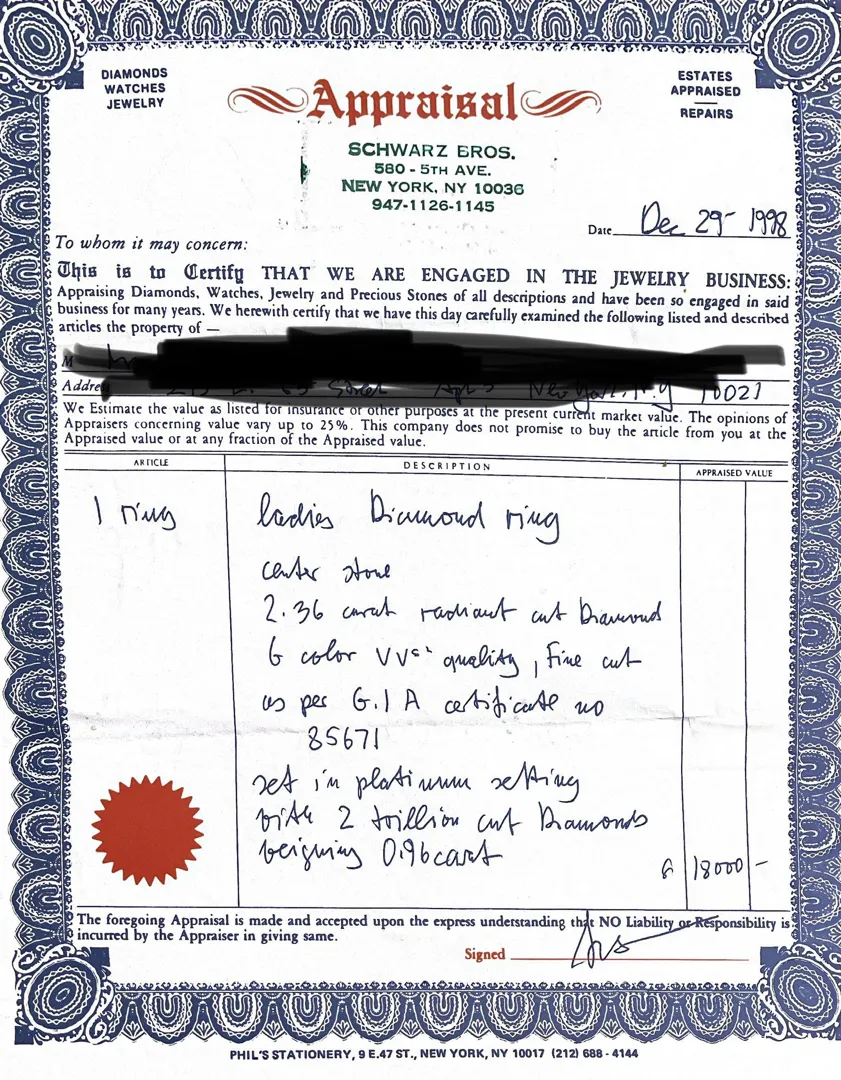 DIAMONDS
WATCHES
JEWELRY
Appraisal
ESTATES
APPRAISED
REPAIRS
SCHWARZ BROS.
580 - 5TH AVE.
NEW YORK, NY 10036
947-1126-1145
Date Dec 29 1998
To whom it may concern:
This is to Certify THAT WE ARE ENGAGED IN THE JEWELRY BUSINESS:
Appraising Diamonds, Watches, Jewelry and Precious Stones of all descriptions and have been so engaged in said
business for many years. We herewith certify that we have this day carefully examined the following listed and described
articles the property of —
M
Addre Street New York, N.Y 10021
We Estimate the value as listed for insurance or other purposes at the present current market value. The opinions of
Appraisers concerning value vary up to 25%. This company does not promise to buy the article from you at the
Appraised value or at any fraction of the Appraised value.
ARTICLE DESCRIPTION APPRAISED VALUE
1 ring ladies Diamond ring
center stone
2.36 carat radiant cut Diamond
G color VVS1 quality, Fine cut
as per G.I A certificate no
85671
set in platinum setting
with 2 trillion cut Diamonds
weighing 0.96 carat
18000 -
The foregoing Appraisal is made and accepted upon the express understanding that NO Liability or Responsibility is
incurred by the Appraiser in giving same.
Signed
PHIL'S STATIONERY, 9 E.47 ST., NEW YORK, NY 10017 (212) 688 - 4144